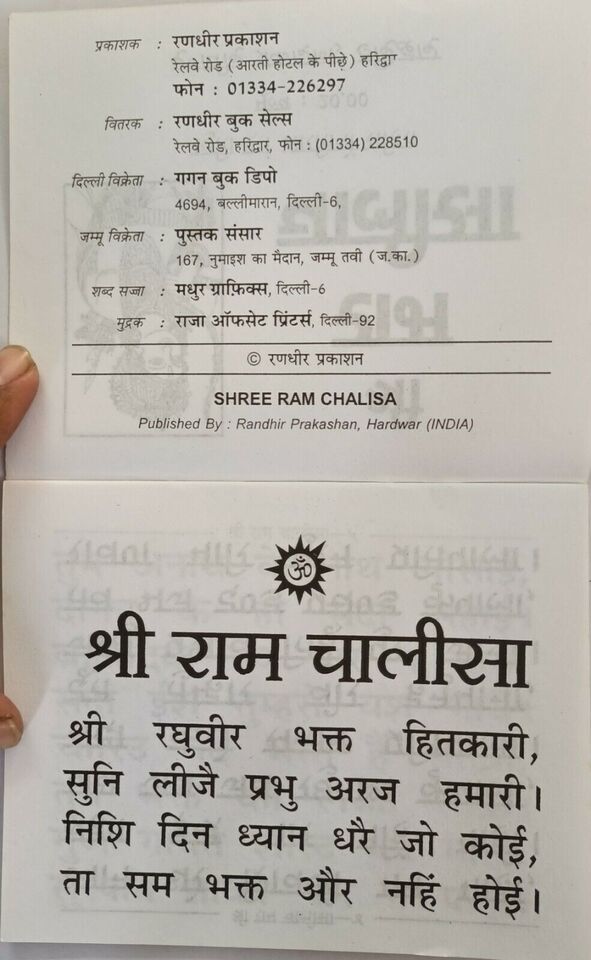 प्रकाशक : रणधीर प्रकाशन
रेलवे रोड (आरती होटल के पीछे) हरिद्वार
फोन : 01334-226297
वितरक : रणधीर बुक सेल्स
रेलवे रोड, हरिद्वार, फोन : (01334) 228510
दिल्ली विक्रेता : गगन बुक डिपो
4694, बल्लीमारान, दिल्ली-6,
जम्मू विक्रेता : पुस्तक संसार
167, नुमाइश का मैदान, जम्मू तवी (ज.का.)
शब्द सज्जा : मधुर ग्राफ़िक्स, दिल्ली-6
मुद्रक : राजा ऑफसेट प्रिंटर्स, दिल्ली-92
© रणधीर प्रकाशन
SHREE RAM CHALISA
Published By : Randhir Prakashan, Hardwar (INDIA)
ॐ
श्री राम चालीसा
श्री रघुवीर भक्त हितकारी,
सुनि लीजै प्रभु अरज हमारी।
निशि दिन ध्यान धरै जो कोई,
ता सम भक्त और नहिं होई।